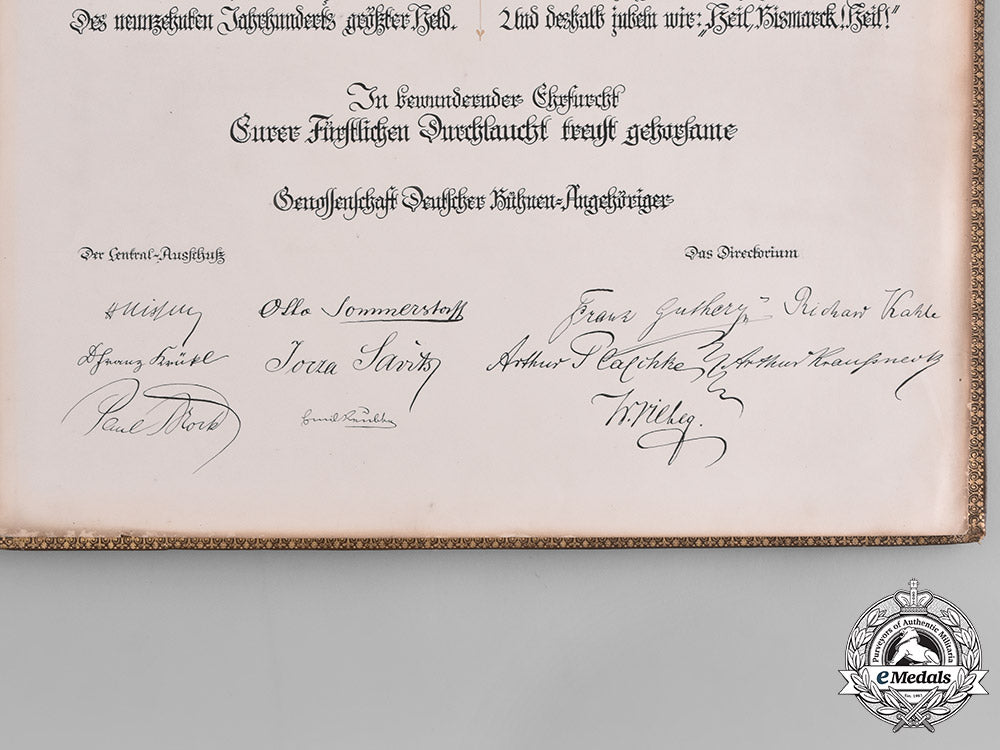 Des neunzehnten Jahrhunderts größter Held.
Und deshalb jubeln wir: „Heil, Bismarck! Heil!“
In bewundernder Ehrfurcht
Eurer Fürstlichen Durchlaucht treust gehorsame
Genossenschaft Deutscher Bühnen-Angehöriger
Der Central-Ausschuß
Das Directorium
HNissen
Otto Sommerstorff
Franz Guthery
Richard Kahle
Dr Franz Krükl
Jocza Savits
Arthur Plaschke
Arthur Kraußneck
Paul Brock
Emil
Purveyors of Authentic Militaria
eMedals